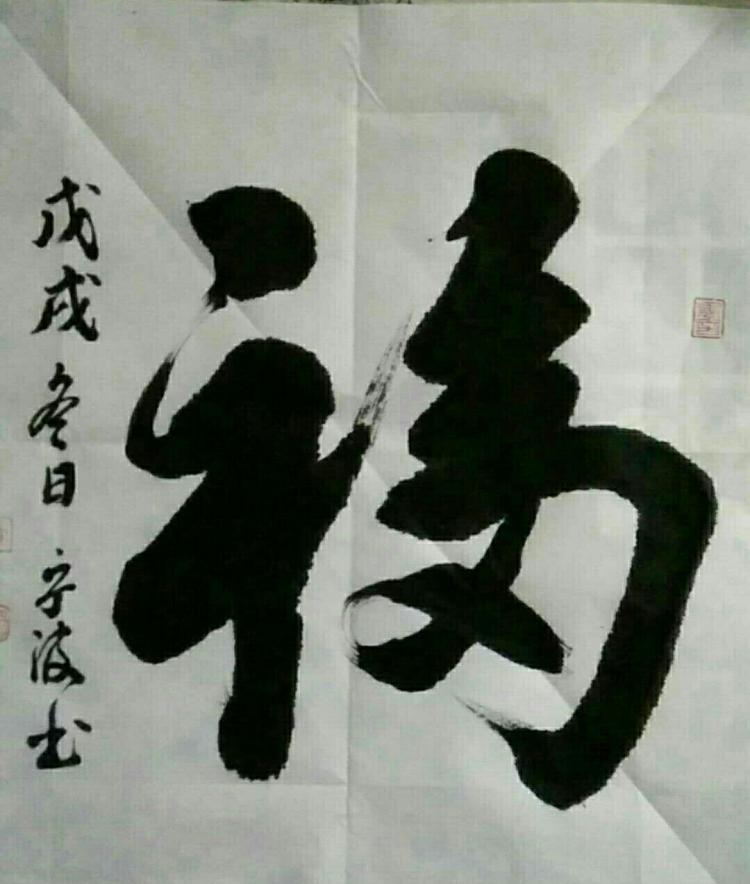 福
戊戌冬日 宁波书